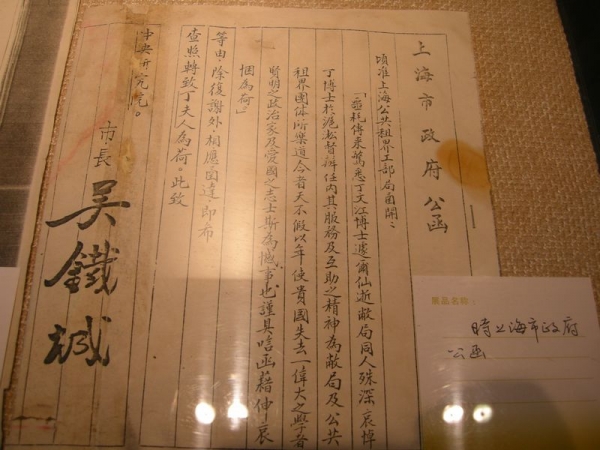 上海市政府公函
頃准上海公共租界工部局函開：
「噩耗傳來驚悉丁文江博士遽爾仙逝敝局同人殊深哀悼
丁博士於滬淞督辦任內其服務及互助之精神為敝局及公共
租界團体所樂道今者天不假以年使貴國失去一偉大之學者
賢明之政治家及愛國之志士斯為憾事也謹具唁函藉伸哀
悃為荷」
等由，除復謝外，相應函達，即布
查照轉致丁夫人為荷。此致
中央研究院。
市長 吳鐵城
展品名稱：
時上海市政府
公函